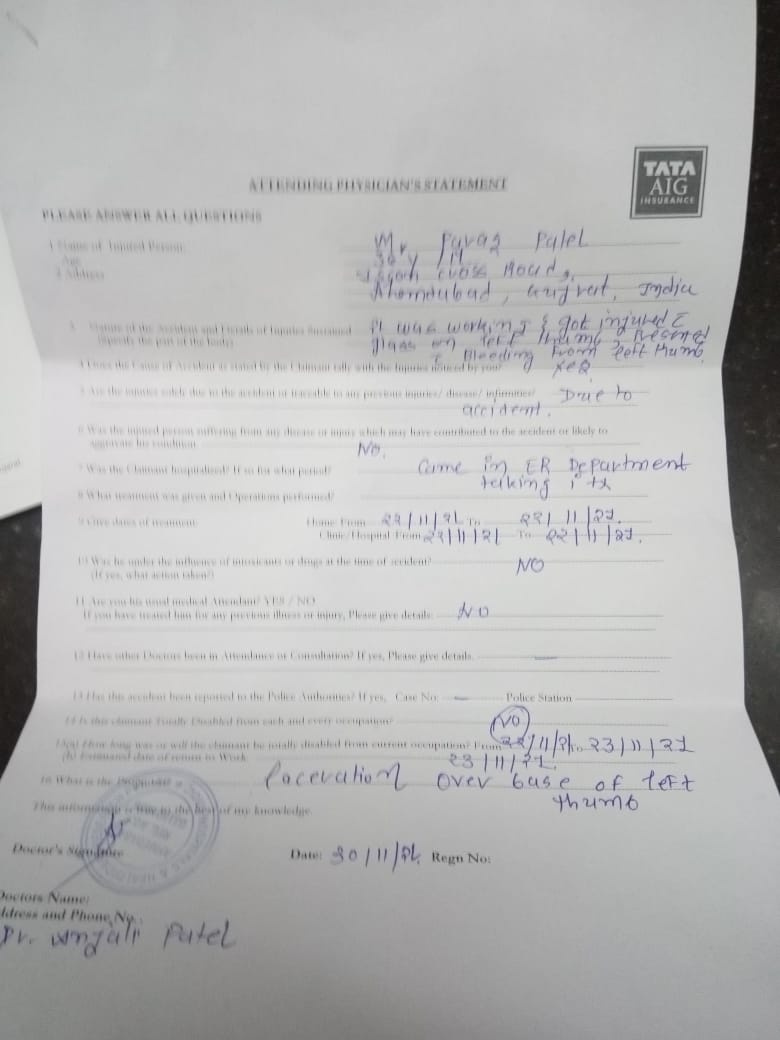 TATA
AIG
INSURANCE
ATTENDING PHYSICIAN'S STATEMENT
PLEASE ANSWER ALL QUESTIONS
1 Name of Injured Person: Mr. Patel
Age
2 Address cross Road,
India
3. Nature of the Accident and Details of Injuries Sustained It was working & got injured c
(Specify the part of the body) glass on left thumb, Present
c Bleeding from left thumb.
4 Does the Cause of Accident as stated by the Claimant tally with the Injuries noticed by you?
5 Are the injuries solely due to the accident or traceable to any previous injuries/ disease/ infirmities? Due to
accident.
6 Was the injured person suffering from any disease or injury which may have contributed to the accident or likely to
aggravate his condition. No.
7 Was the Claimant hospitalised? If so for what period? Came in ER Department
taking tx
8 What treatment was given and Operations performed?
9 Give dates of treatment: Home From 22/11/21 To 22/11/21.
Clinic/Hospital From 22/11/21 To 22/11/21.
10 Was he under the influence of intoxicants or drugs at the time of accident? NO
(If yes, what action taken?)
11 Are you his usual medical Attendant? YES / NO
If you have treated him for any previous illness or injury, Please give details: NO
12 Have other Doctors been in Attendance or Consultation? If yes, Please give details. —
13 Has this accident been reported to the Police Authorities? If yes, Case No: — Police Station
14 Is this claimant Totally Disabled from each and every occupation? NO
15(a) How long was or will the claimant be totally disabled from current occupation? From 22/11/21 To 23/11/21
(b) Estimated date of return to Work 23/11/21.
16 What is the Laceration over base of left
thumb
This information is true to the best of my knowledge.
Doctor's Signature Date: 30/11/21. Regn No:
Doctors Name:
Address and Phone No.:
Dr. Anjali Patel